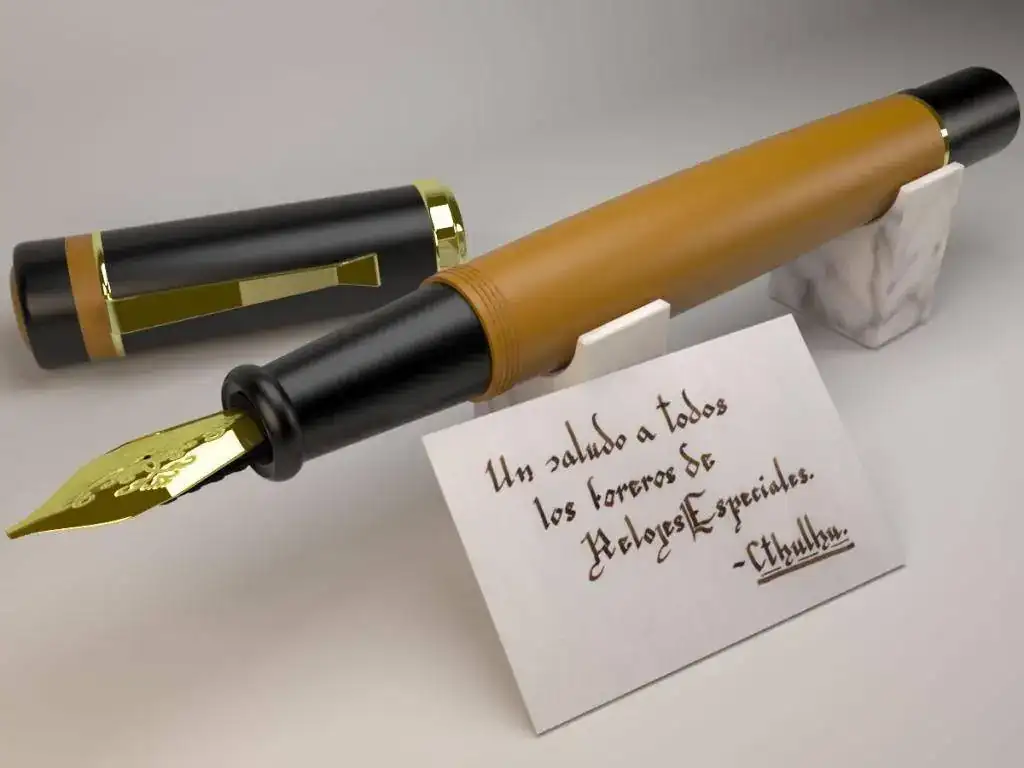 Un saludo a todos
los foreros de
RelojesEspeciales.
-Cthulhu.